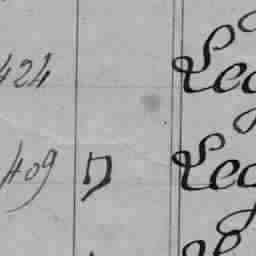 424 Leg
409 D Leg